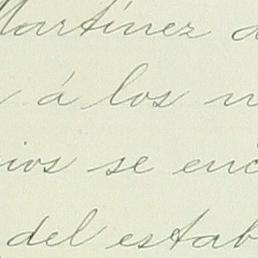 Martínez a
á los n
ios se enc
del estab